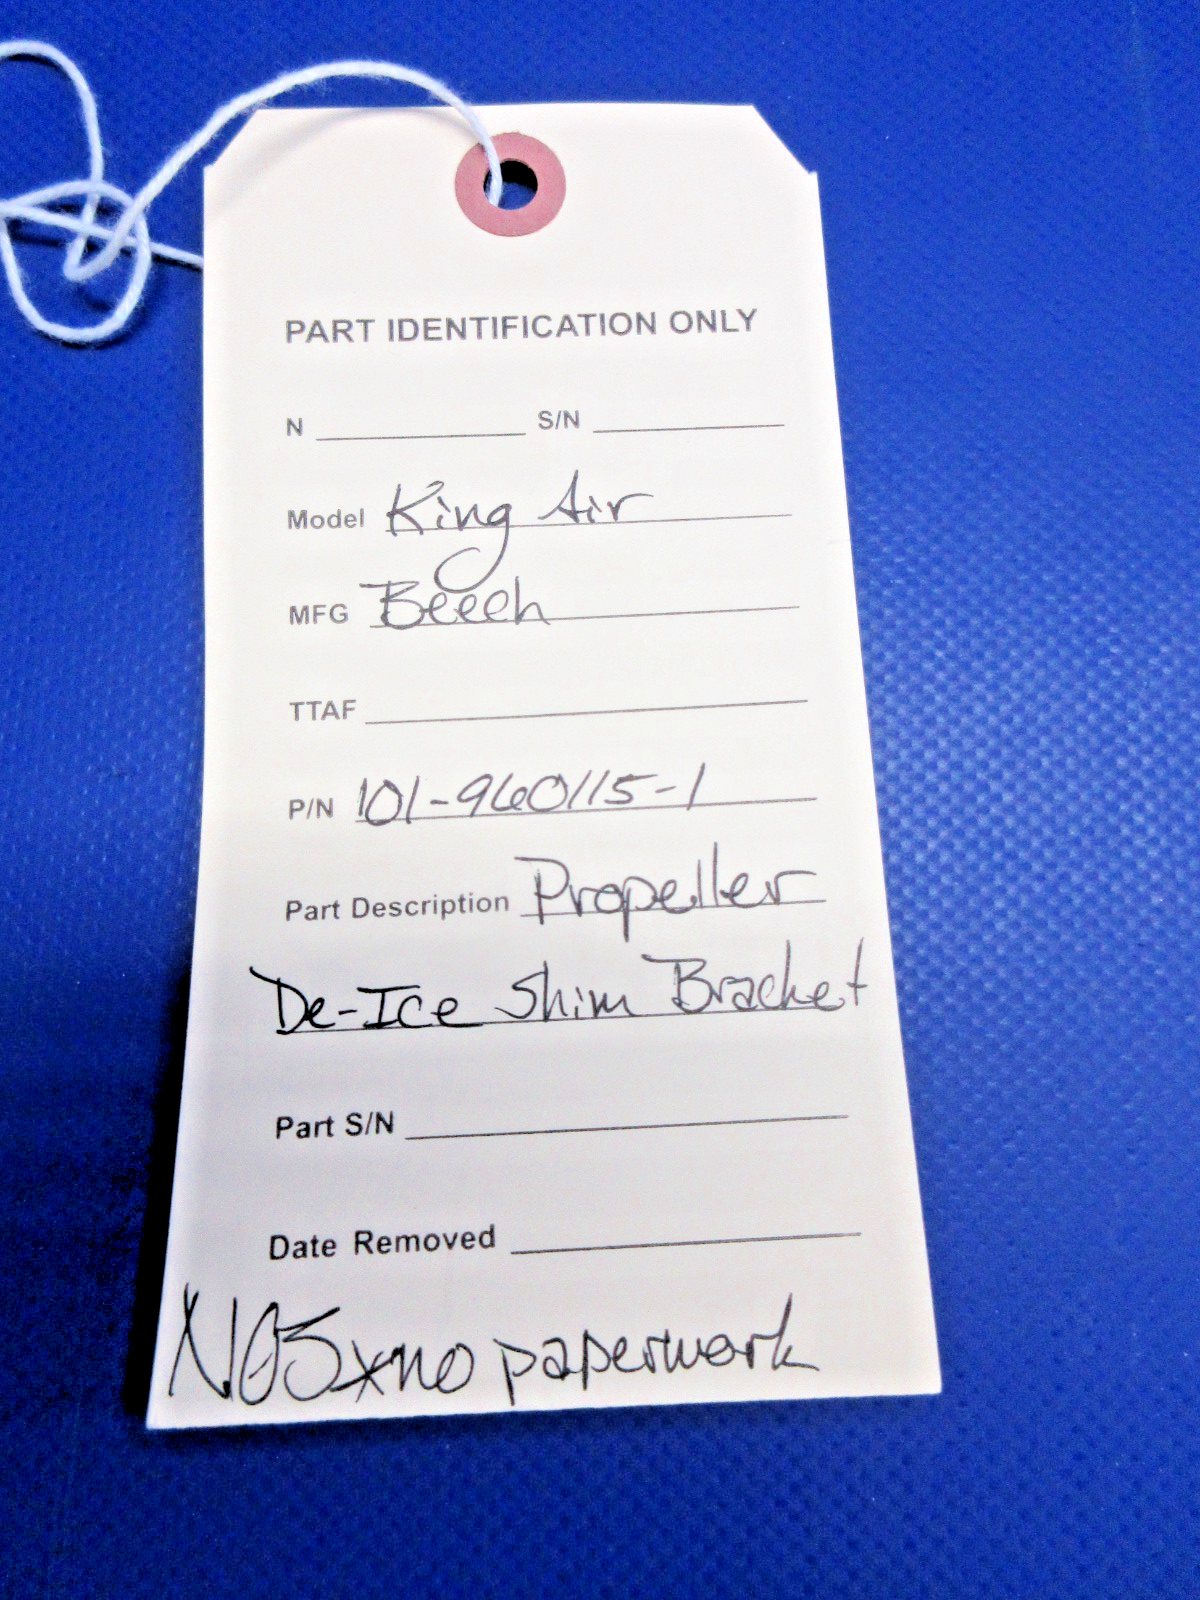 PART IDENTIFICATION ONLY
N S/N
Model King Air
MFG Beech
TTAF
P/N 101-960115-1
Part Description Propeller
De-Ice Shim Bracket
Part S/N
Date Removed
NOS *no paperwork